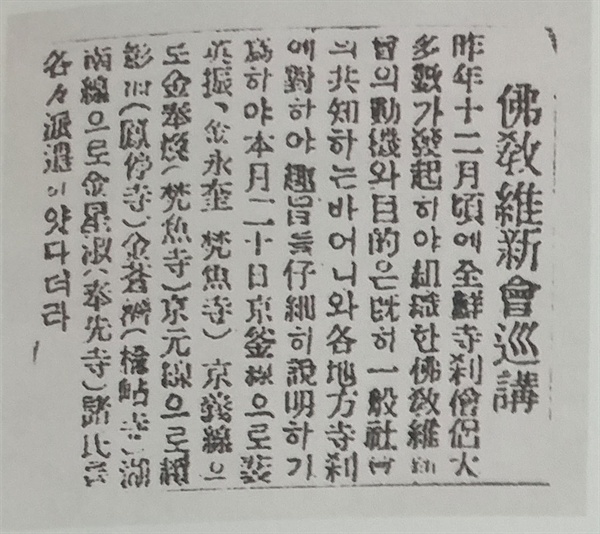 佛敎維新會巡講
昨年十二月頃에全鮮寺刹僧侶大
多數가發起히야組織한佛敎維新
會의動機와目的은旣히一般社會
의共知하는바어니와各地方寺刹
에對하야趣旨를仔細히說明하기
爲하야本月二十日京釜線으로裴
英振、金永奎 梵魚寺)京義線으
로金奉煥(梵魚寺)京元線으로趙
(停寺)金蒼(楡岾寺)湖
南線으로金星淑(奉先寺)諸氏를
各々派遣이얏다더라